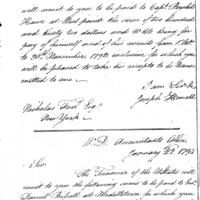 will remit to you to be paid to Capt. Bezaleel
Howe at West point the sum of two hundred
and Ninety two dollars and 46 Cts being for
pay of himself and of his recruits from 1 Oct.
to 30th November 1793 inclusive for which you
will be pleased to take his receipts to be trans-
mitted to me
I am Sir &c
Joseph Howell
Nicholas Fish Esq.
New York
W. D. Accountants Office
January 22d 1794
Sir
The Treasurer of the U States will
remit to you the following sums to be paid to Ens.
Samuel at Middletown for which you